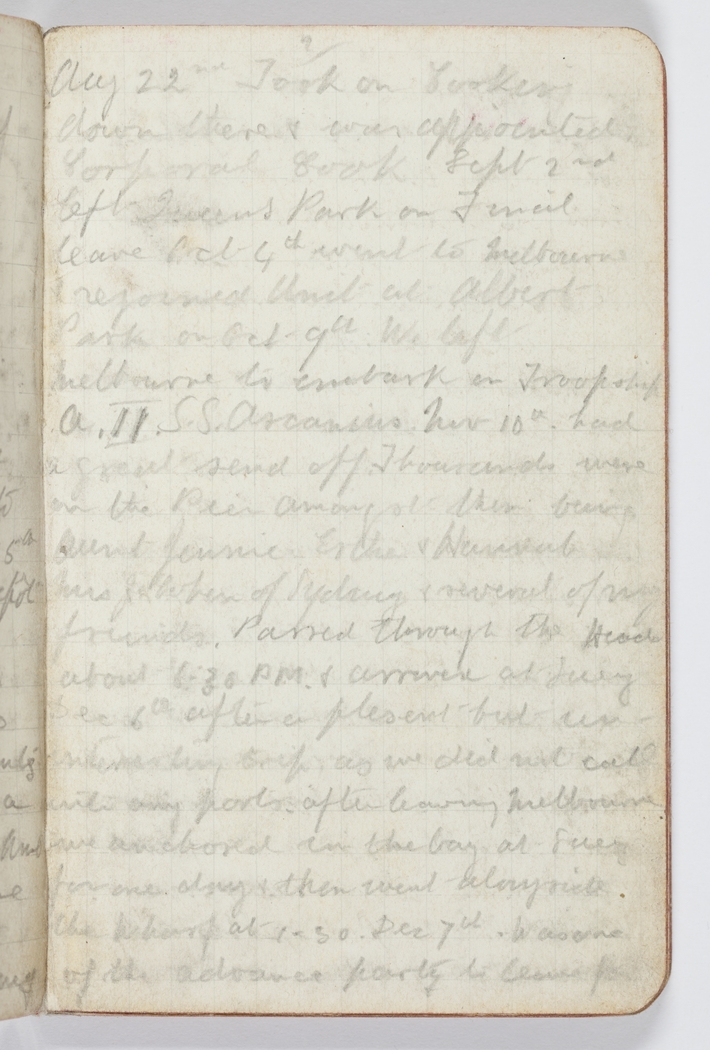 2
Aug 22nd Took on Cooking
down there & was appointed
Corporal Cook Sept 2nd
left Queens Park on Final
leave Oct 4th went to Melbourne
rejoined Unit at Albert
Park on Oct 9th We left
Melbourne to embark on Troopship
A. II. S.S. Ascanius Nov 10th. had
a great send off. Thousands were
on the Pier amongst them being
Aunt Jennie & Hannah
of Sydney & several of my
friends. Passed through the Heads
about 6.30 P.M. & arrived at Suez
Dec 6th after a plesent but un-
interesting trip, as we did not call
into any ports. after leaving Melbourne
we anchored in the bay at Suez
for one day & then went alongside
the Wharf at 1-30. Dec 7th. Was one
of the advance party to leave